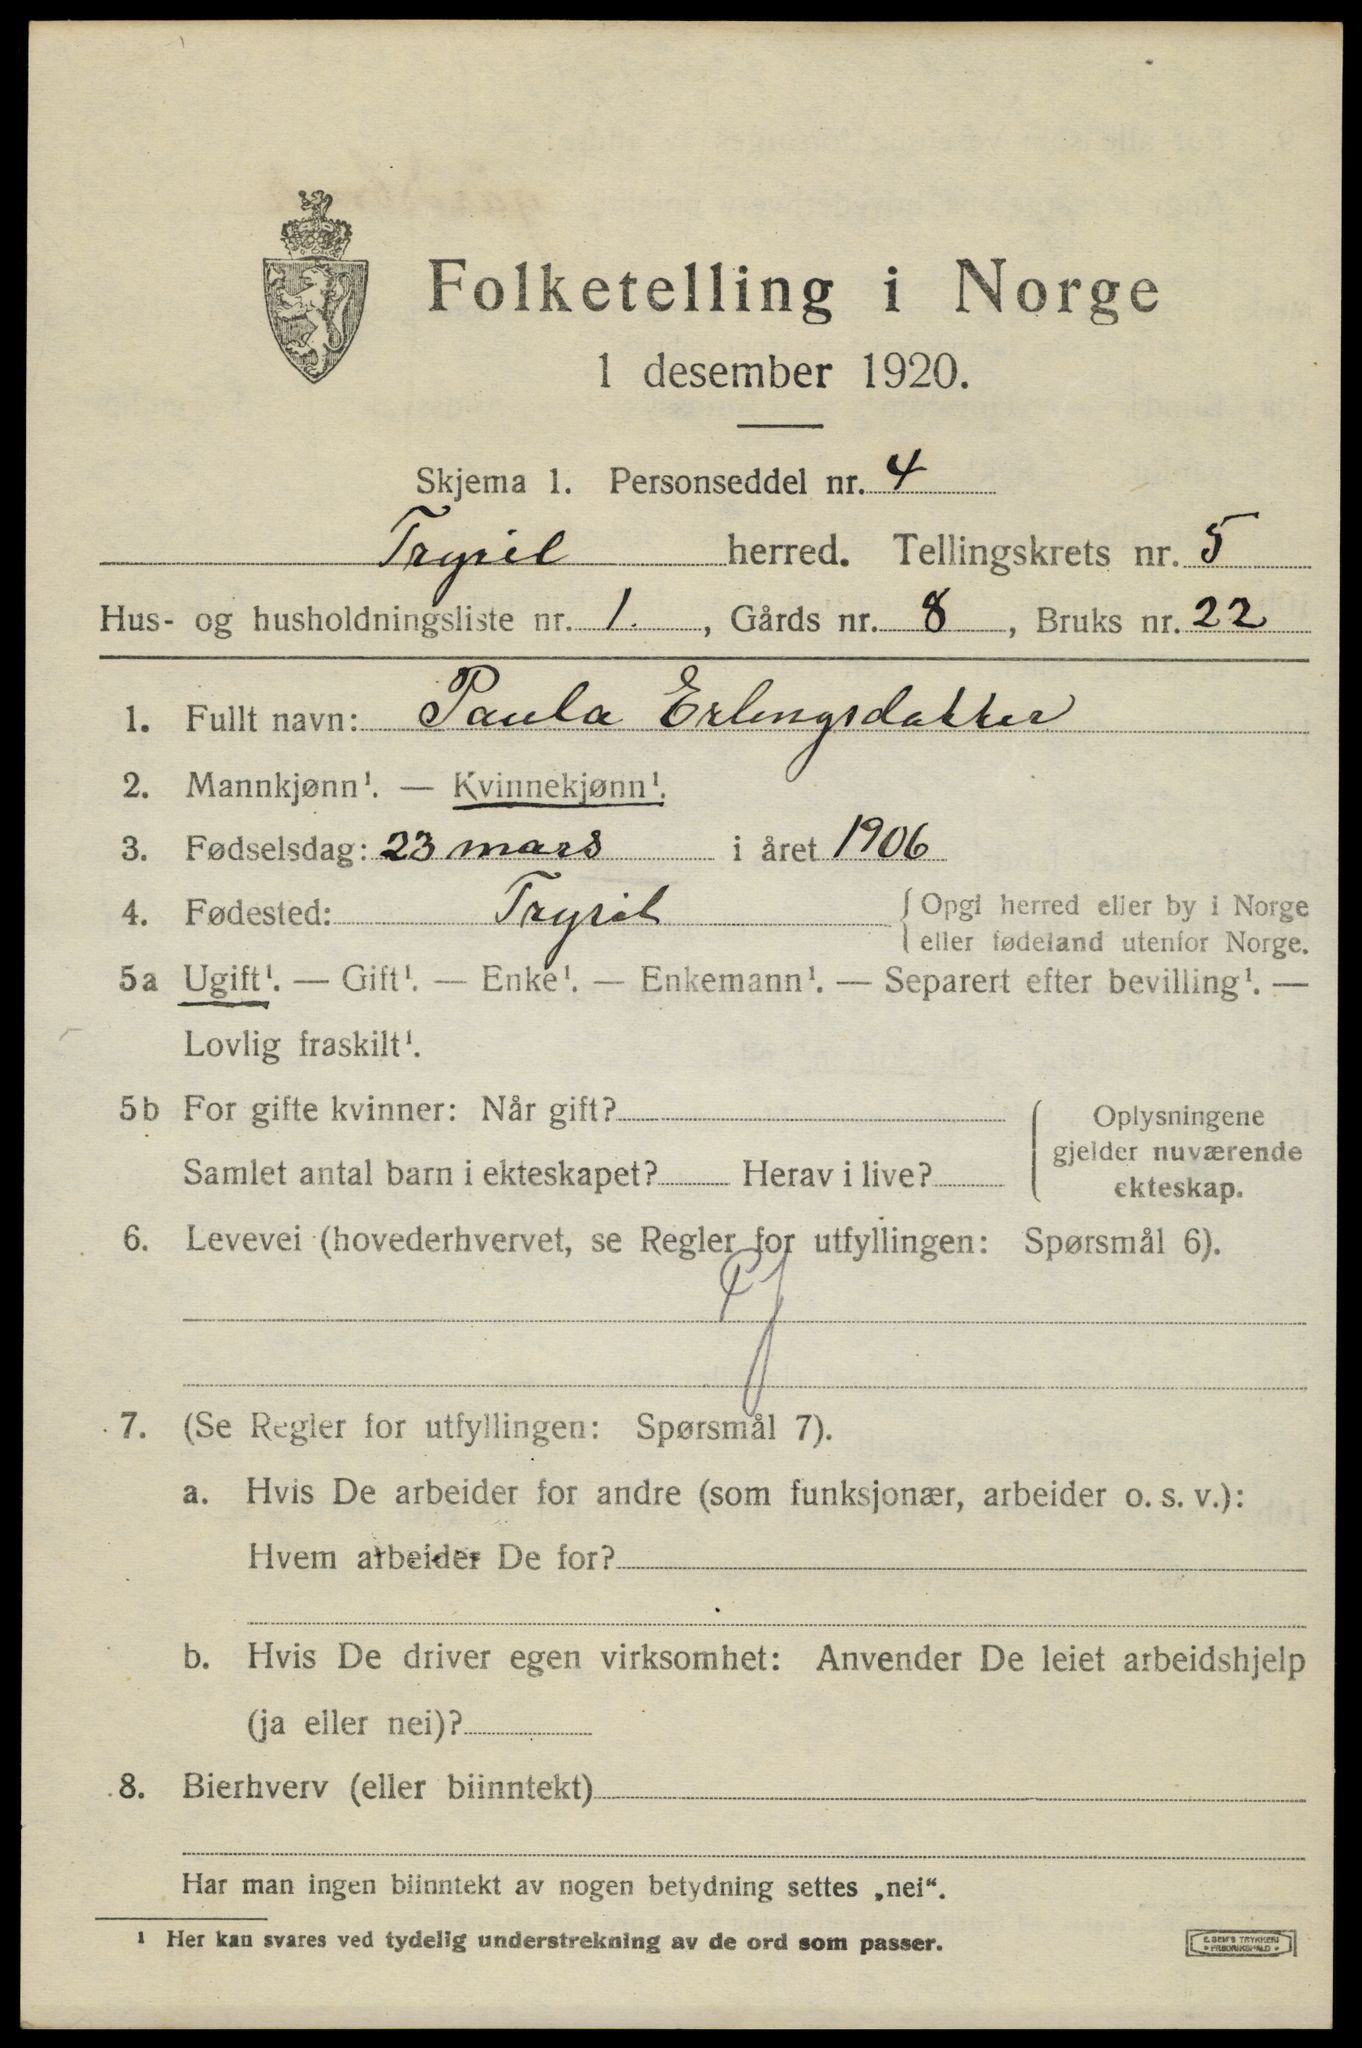 Folketelling i Norge
1 desember 1920.
Skjema 1. Personseddel nr. 4
Trysil herred. Tellingskrets nr. 5
Hus- og husholdningsliste nr. 1. , Gårds nr. 8 , Bruks nr. 22
1. Fullt navn: Paula Erlingsdatter
2. Mannkjønn¹. — Kvinnekjønn¹.
3. Fødselsdag: 23 mars i året 1906
4. Fødested: Trysil { Opgi herred eller by i Norge
eller fødeland utenfor Norge.
5a Ugift¹. — Gift¹. — Enke¹. — Enkemann¹. — Separert efter bevilling¹. —
Lovlig fraskilt¹.
5b For gifte kvinner: Når gift?
Samlet antal barn i ekteskapet? Herav i live?
Oplysningene
gjelder nuværende
ekteskap.
6. Levevei (hovederhvervet, se Regler for utfyllingen: Spørsmål 6).
7. (Se Regler for utfyllingen: Spørsmål 7).
a. Hvis De arbeider for andre (som funksjonær, arbeider o. s. v.):
Hvem arbeider De for?
b. Hvis De driver egen virksomhet: Anvender De leiet arbeidshjelp
(ja eller nei)?
8. Bierhverv (eller biinntekt)
Har man ingen biinntekt av nogen betydning settes „nei“.
¹ Her kan svares ved tydelig understrekning av de ord som passer.
E. SEM'S TRYKKERI
• FREDRIKSHALD •